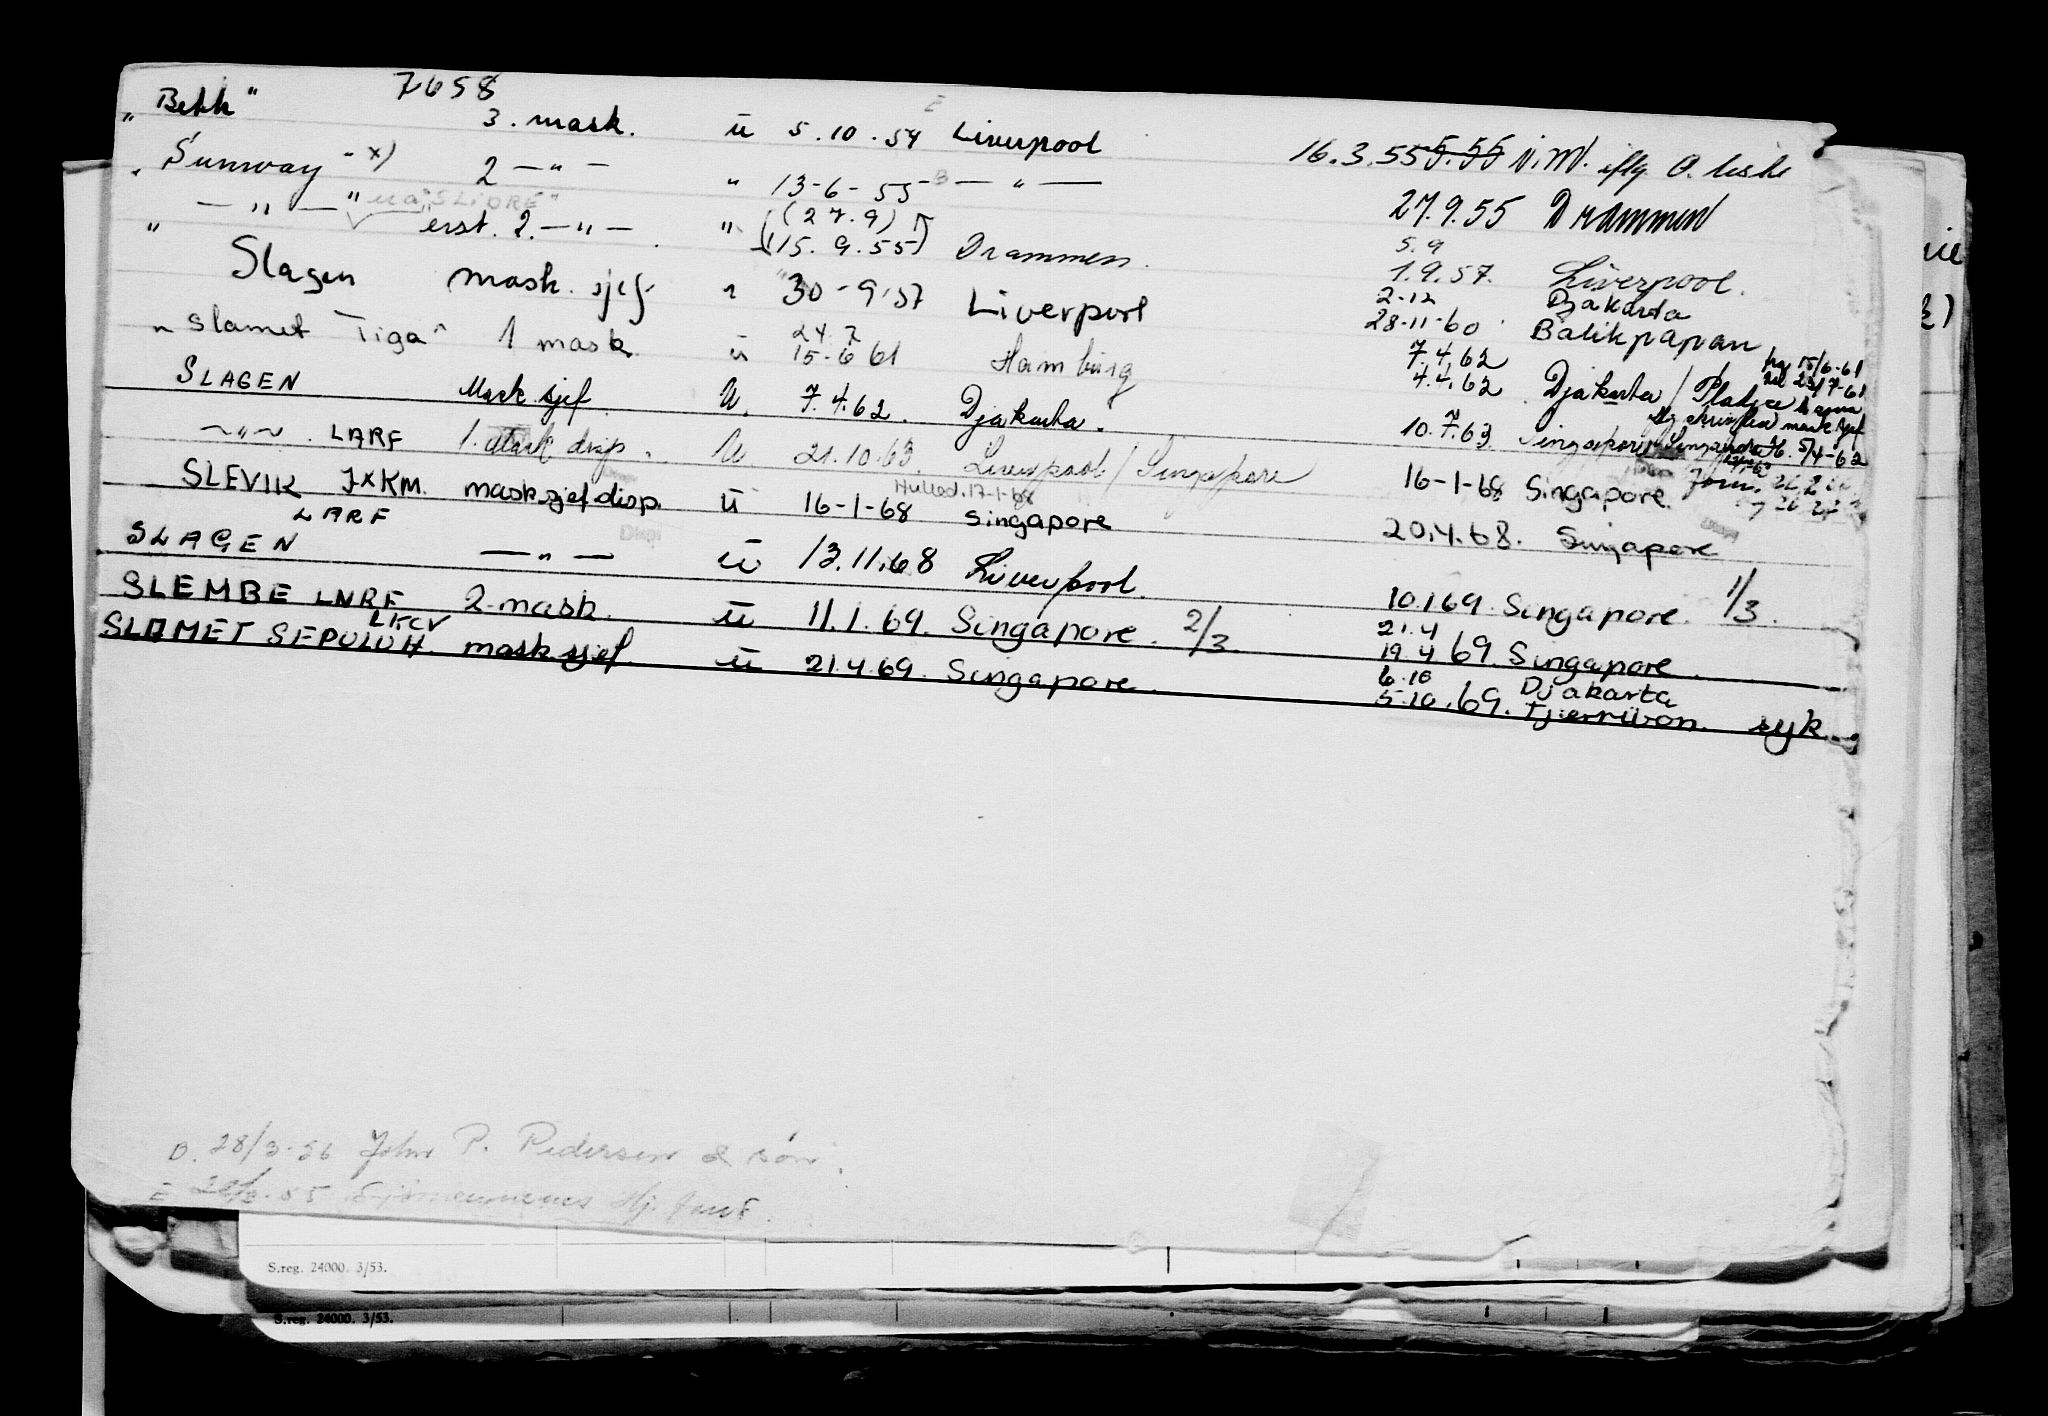 7658
„Bekk" 3. mask. ü 5.10.54 Liverpool 16.3.55 5.55 iflg. O. liste
„Sunway" x) 2 — " — " 13-6-55 — " — 27.9.55 Drammen
" — " — " erst. 2. — " — " (27.9) (15.9.55) Drammen. 5.9 1.9.57. Liverpool.
Slagen mask. sjef " 30-9-57 Liverpool 2-12 28-11-60 Djakarta Balikpapan
"Slamet Tiga" 1 mask ü 24.7 15-6 61 Hamburg 7.4.62 4.4.62 Djakarta / Pladjoe
SLAGEN Mask.sjef. ü. 7.4.62. Djakarta. 10.7.63. Singapore
— " — LARF 1. mask disp. ü. 21.10.63. Liverpool / Singapore 16-1-68 Singapore.
Hulled. 17-1-68
SLEVIK JXKM. mask sjef disp. ü 16-1-68 Singapore 20.4.68. Singapore
LARF
SLAGEN — " — ü 13.11.68 Liverpool. 10.1.69. Singapore. 1/3.
SLEMBE LNRF 2-mask. ü 11.1.69. Singapore. 2/3 21.4 19.4 69. Singapore
LKCV
SLAMET SEPULUH. mask sjef. ü 21.4.69. Singapore. 6.10 5.10.69. Djakarta Tjierribon. syk.
B. 28/3-56 John P. Pedersen & Søn.
E
S.reg. 24000. 3/53.
S.reg. 24000. 3/53.